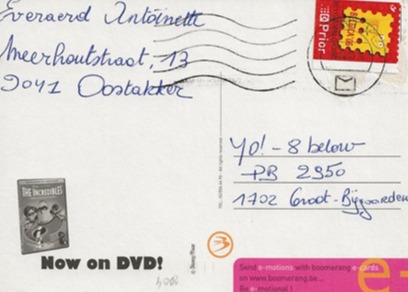 Everaerd Antoinette
Meerhoutstraat, 13
9041 Oostakker
Prior
YO! - 8 below
PB 2950
1702 Groot-Bijgaarden
THE INCREDIBLES
Now on DVD!
© Disney/Pixar
Send e-motions with boomerang e-cards
on www.boomerang.be...
Be e-motional !
e-